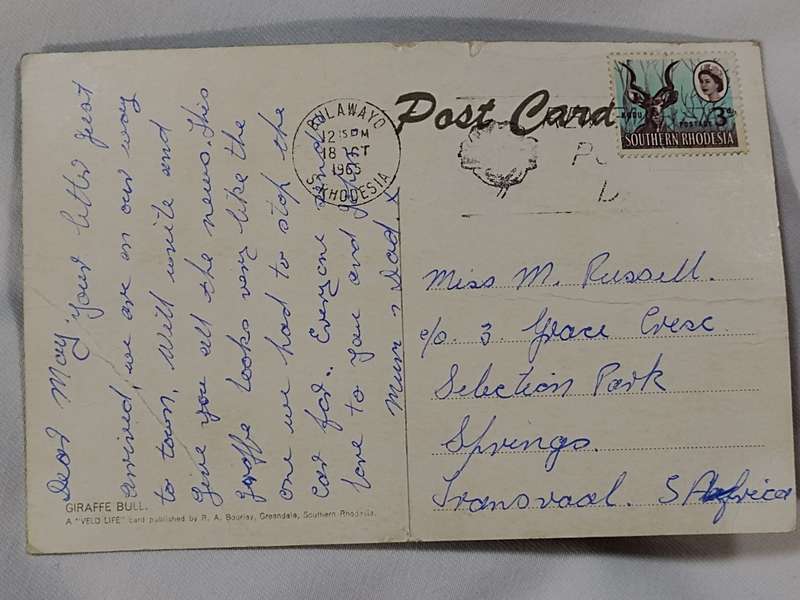 Dear May, your letter just
arrived, we are on our way
to town. Will write and
give you all the news. This
giraffe looks very like the
one we had to stop the
car for. Everyone sends
love to you and
Mum & Dad. x
GIRAFFE BULL.
A "VELD LIFE" card published by R. A. Bourlay, Greendale, Southern Rhodesia.
Post Card
BULAWAYO
12 15 PM
18 OCT
S. RHODESIA
KUDU
POSTAGE
3d
SOUTHERN RHODESIA
Miss M. Russell.
c/o. 3. Grace Cresc
Selection Park
Springs.
Transvaal. S Africa